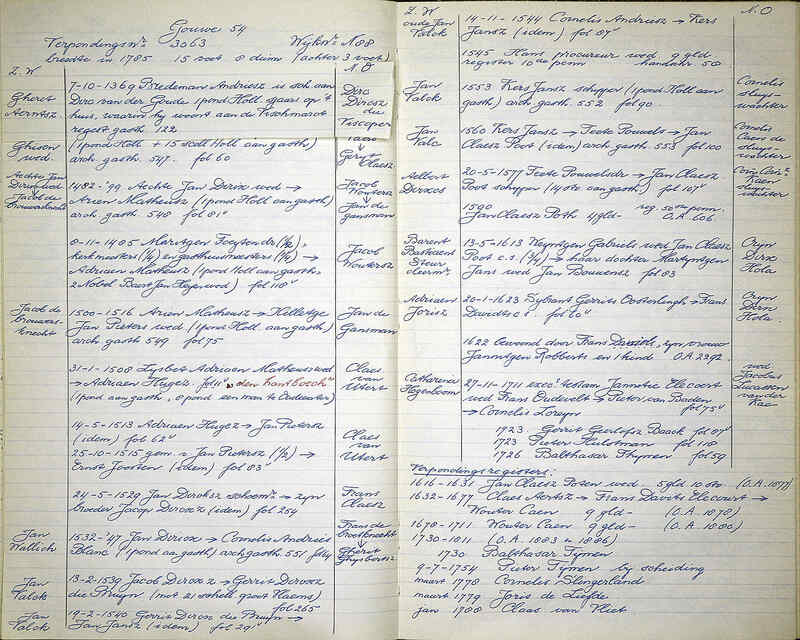 Gouwe 54
Verpondings Nr 3063 Wijk Nr N 88
breedte in 1785 15 voet 8 duim (achter 3 voet)
Z.W N.O
7-10-1369 Bredeman Andriesz is sch. aan
Gheret Aerntsz.
Dirc van der Goude 1 pond Holl. sjaars op 't
huis, waarin hij woont aan de Vischmarct
regest gasth 122
Dirc Dircsz die Viscoper
Ghisen wed.
(1 pond Holl + 15 sc Holl aan gasth)
arch gasth. 547. fol 60
Geryt Claesz
Aechte Jan Dirxx wed
Jacob de Brouwersknecht
1482-'99 Aechte Jan Dirxx wed →
Arien Matheusz (1 pond Holl aan gasth)
arch gasth 548 fol 81v
Jacob Woutersz
Jan de Gansman
8-11-1485 Maritgen Foeyten dr (1/2),
kerkmeesters (1/4) en gasthuismeesters (1/4) →
Adriaen Matheusz (1 pond Holl aan gasth,
fol 118v
Jacob Woutersz
Jacob de Brouwersknecht
1500-1516 Arien Matheusz → Hilletge
Jan Pieters wed (1 pond Holl aan gasth)
arch gasth 549 fol 75
Jan de Gansman
31-1-1508 Lysbet Adriaen Matheus wed
→ Adriaen Hugez. fol 11v "den hantboech"
(1 pond aan gasth, 8 pond een man te Oudewater)
Claes van Utert
14-5-1513 Adriaen Hugez → Jan Pietersz
(idem) fol 62v
25-10-1515 gem. s Jan Pietersz (1/2) →
Ernst Joosten (idem) fol 83v
Claes van Utert
24-5-1529 Jan Dircksz schoenmr → zyn
broeder Jacop Dircxsz (idem) fol 254
Frans Claesz
Jan Wallich
1532-'47 Jan Dircxsz → Cornelis Andriesz
Blanc (1 pond aan gasth) arch gasth 551 fol 44
Frans de Grootknecht
Gherit Ghysbertsz
Jan Valck
13-2-1539 Jacob Dircxsz → Gerrit Dircxsz
die Bruyn (met 21 schell. groot Vlaems)
fol 265
Jan Valck
19-2-1540 Gerrit Dircxsz die Bruyn →
Jan Jansz (idem) fol 29v
Z.W N.O
oude Jan Valck
14-11-1544 Cornelis Andriesz → Kers
Jansz (idem) fol 87v
1545 Hans procureur wed 9 gld
register 10de penn handschr 50
Jan Valck
1553 Kers Jansz schipper (1 pond Holl aan
gasth) arch gasth 552 fol 90.
Cornelis sluyswachter
Jan Valc
1560 Kers Jansz → Feete Pouwels → Jan
Claesz Poot (idem) arch gasth 553 fol 100
Cornelis Caen de sluyswachter
Aelbert Dircxss
20-5-1577 Feete Pouwels dr → Jan Claesz.
Poot schipper (14 sto aan gasth) fol 107v
1590 reg. 50ste penn.
Jan Claesz Poth 4 gld- O.A. 606.
Barent Bastiaens Steur
13-5-1613 Weyntgen Gabriels wed Jan Claesz
Poot c.s. (3/4) → haar dochter Martyntgen
Jans wed Jan Bouwensz fol 83
Cryn Dirx Hola
Adriaen Jorisz
20-1-1623 Sybrant Gerrits Oosterlingh → Frans
Davidts c.s. fol 60v
Cryn Dirxx Hola.
1622 bewoond door Frans Davidts, zyn vrouw
Janntgen Robberts en 1 kind O.A. 2292
Catharina Hagenboom
27-11-1711 exec. testam. Jannetie Elecoort
wed Frans Oudewelt → Pieter van Baden
→ Cornelis Loreyn fol 75v
wed Jacobus Lucassen van der Kae
1723 Gerrit Gerlofsz Baack fol 87v
1723 Pieter Hulstman fol 118
1726 Balthasar Thymen fol 59
Verpondingsregisters:
1616-1631 Jan Claesz Posen wed - 5 gld 10 sto (O.A. 1077)
1632-1677 Claes Aertsz → Frans Davits Elecourt →
Wouter Caen 9 gld- (O.A. 1078)
1678-1711 Wouter Caen 9 gld- (O.A. 1080)
1730-1811 (O.A. 1083 en 1086)
1730 Balthasar Tymen
9-7-1754 Pieter Tymen by scheiding
maart 1778 Cornelis Slingerland
maart 1779 Joris de Liefde
jan 1788 Claas van Vliet